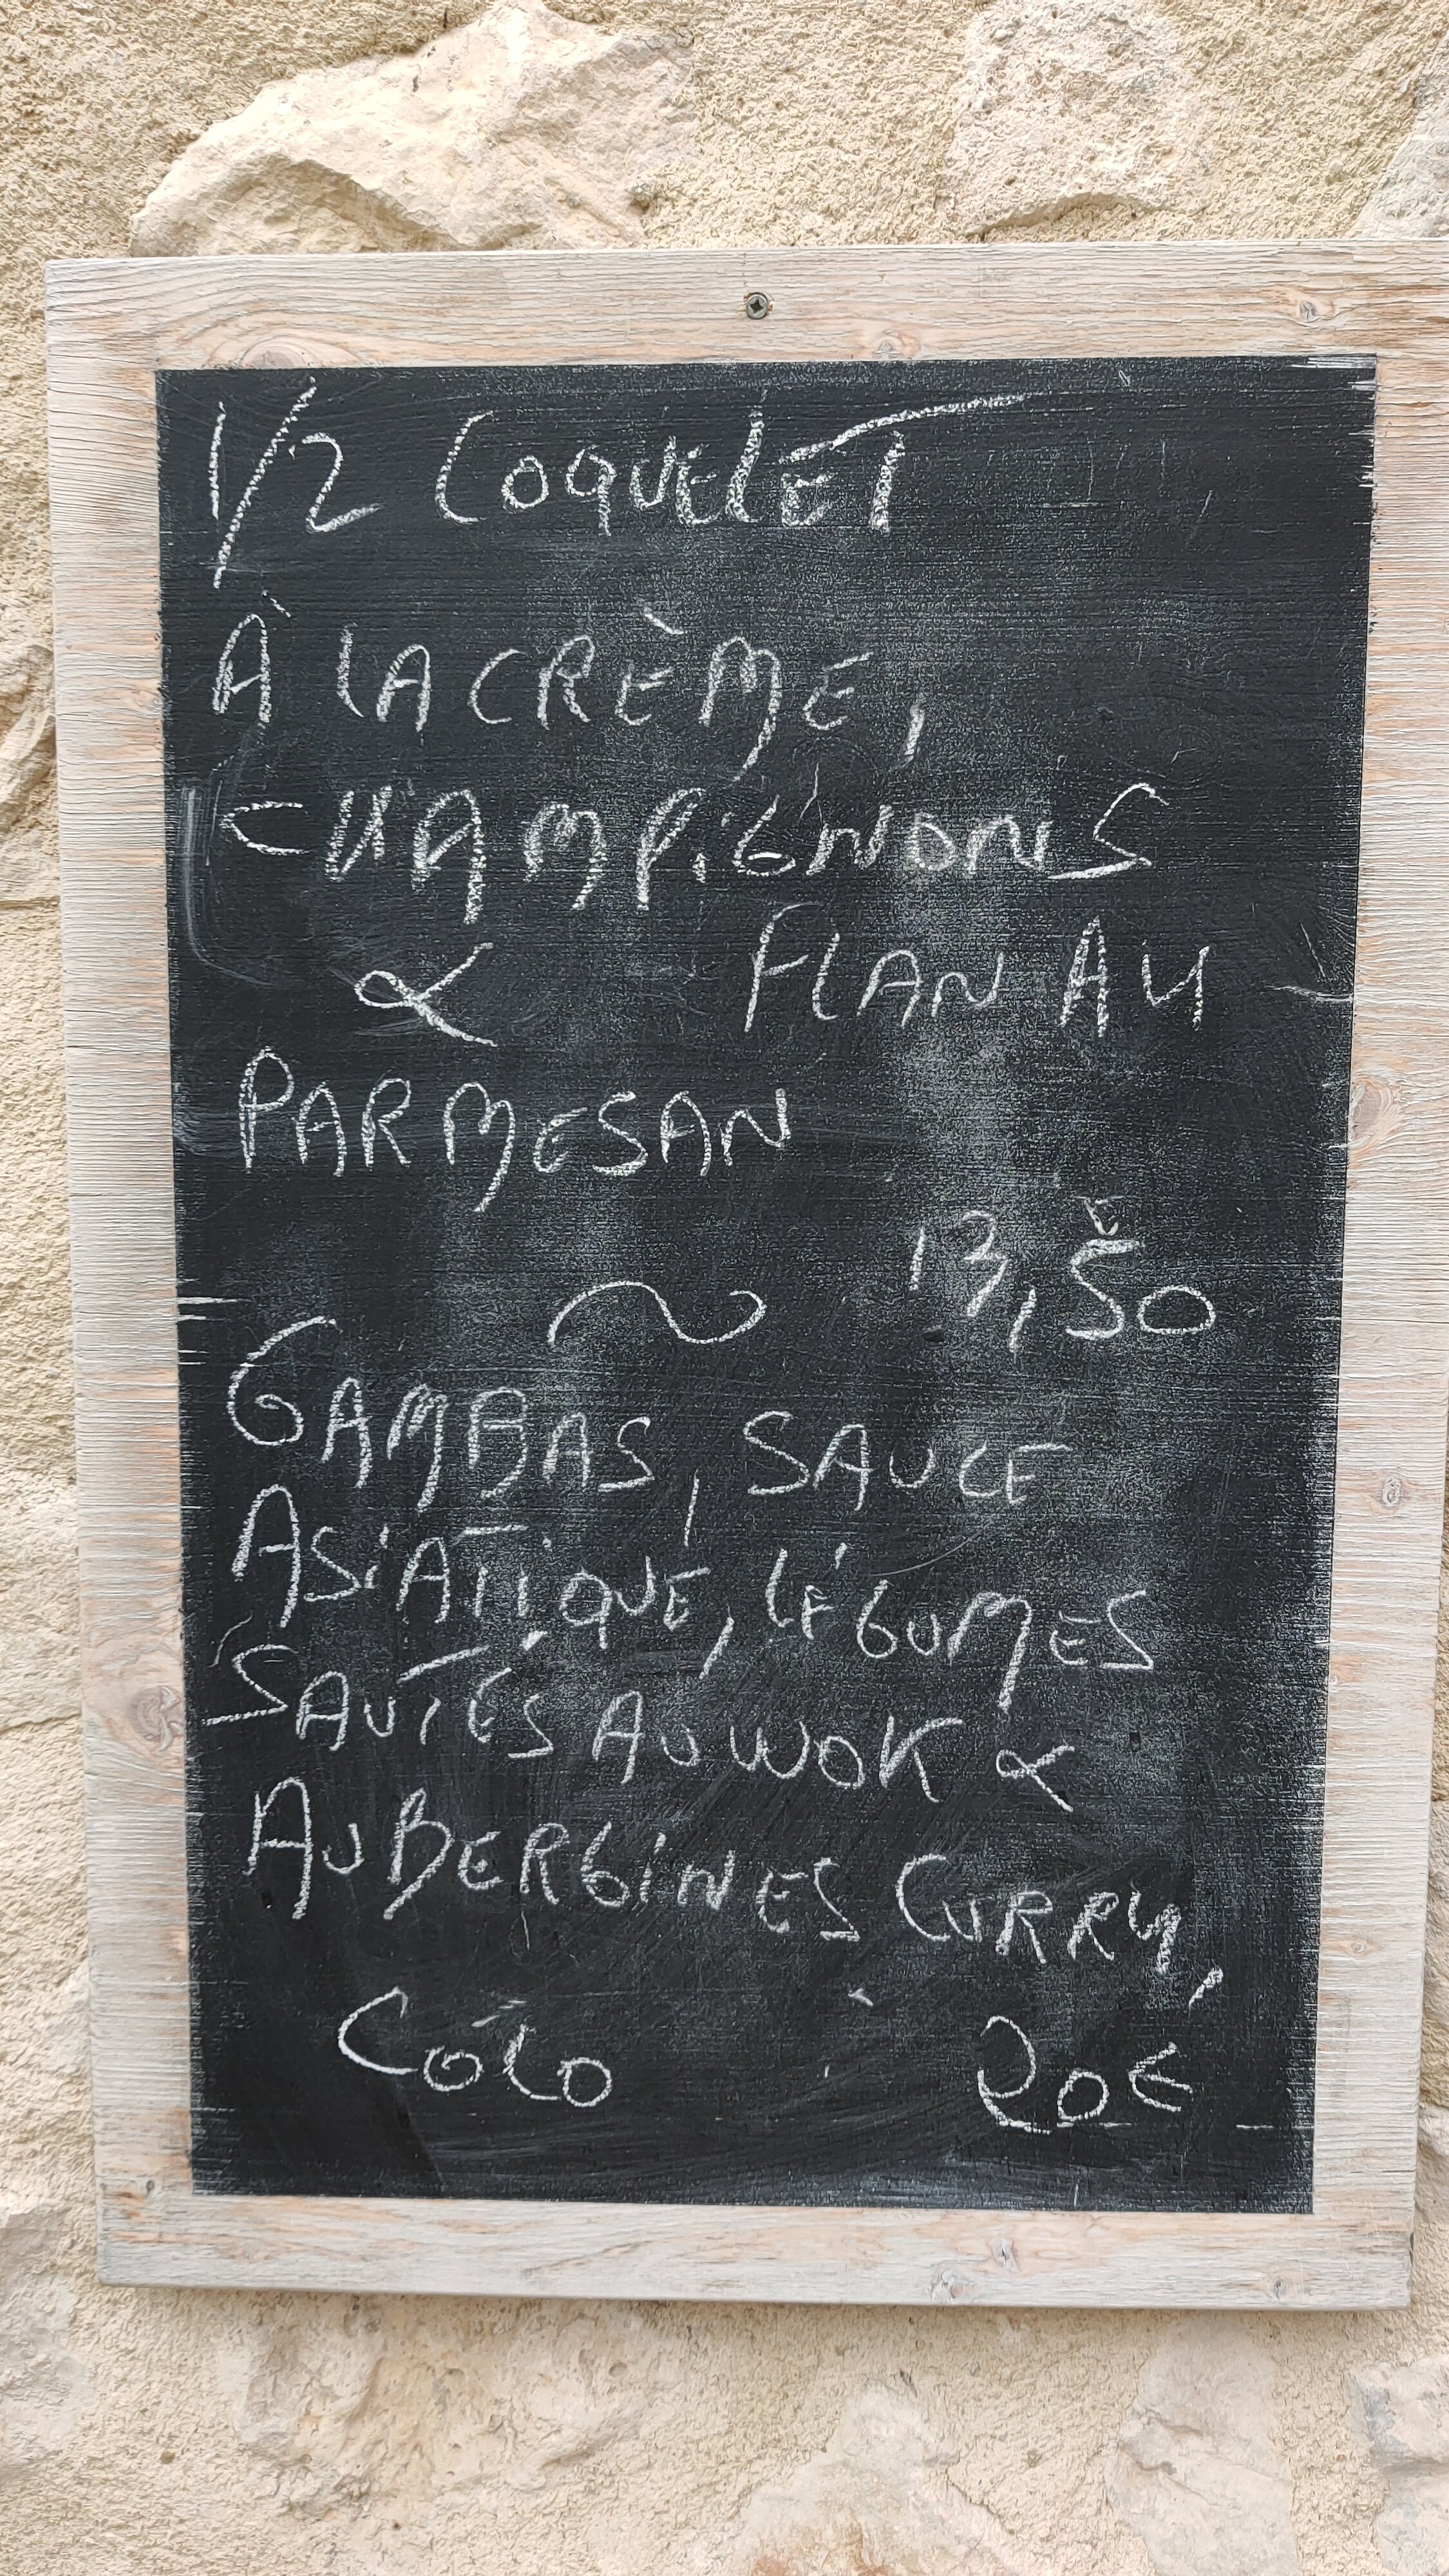 1/2 COQUELET
À LA CRÈME,
CHAMPIGNONS
& FLAN AU
PARMESAN
13,50 €
~
GAMBAS, SAUCE
ASIATIQUE, LÉGUMES
SAUTÉS AU WOK &
AUBERGINES CURRY,
COCO 20€